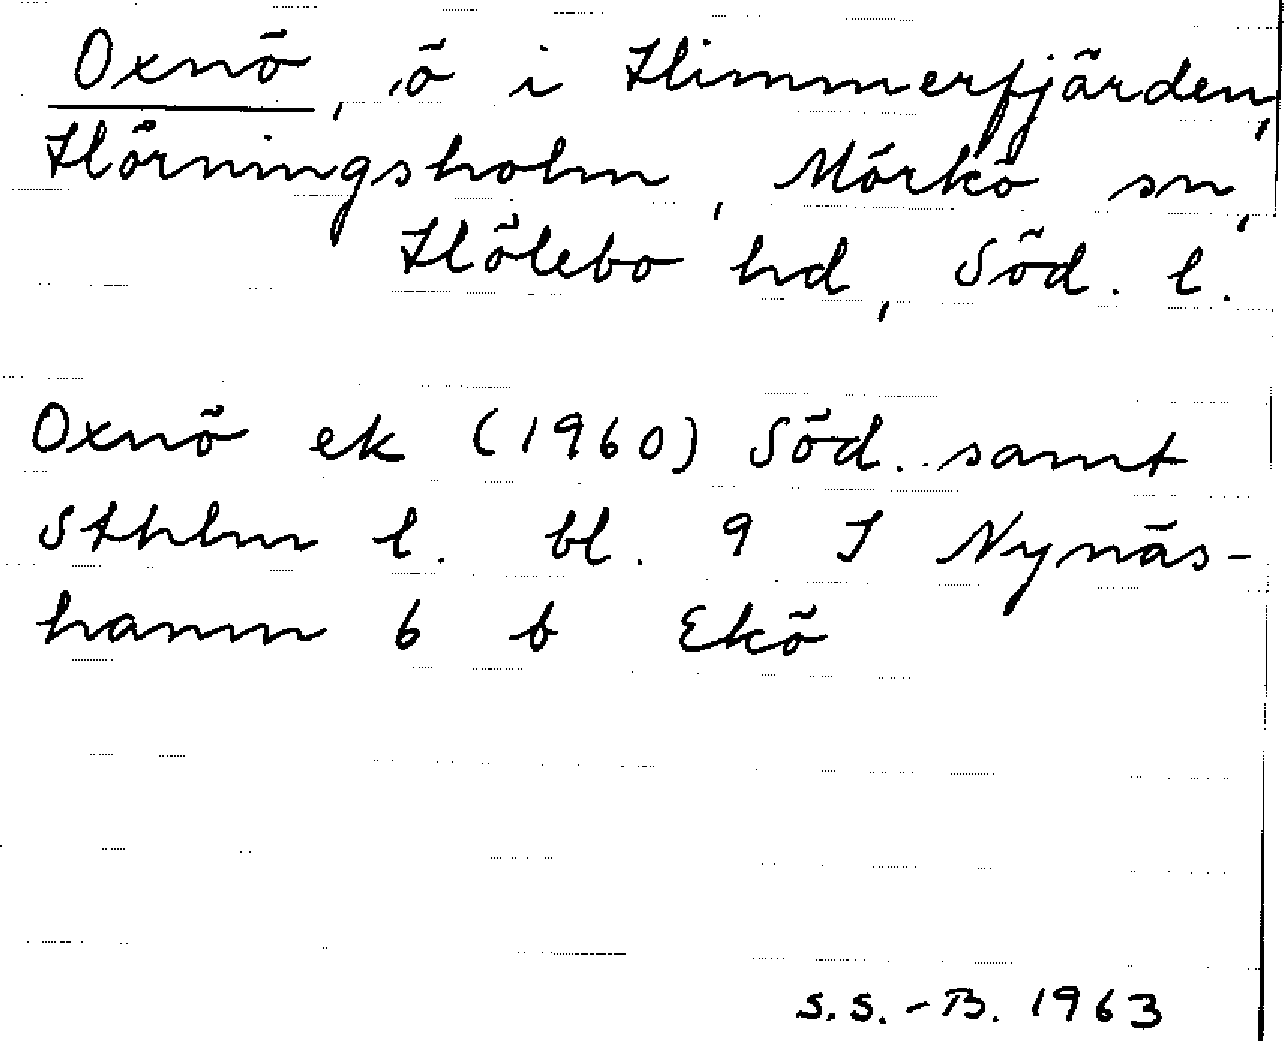 Oxnö, ö i Himmerfjärden,
Hörningsholm, Mörkö sn,
Hölebo hd, Söd. l.
Oxnö ek (1960) Söd. samt
Sthlm l. bl. 9 I Nynäs-
hamn 6 b Ekö
S.S.-B. 1963